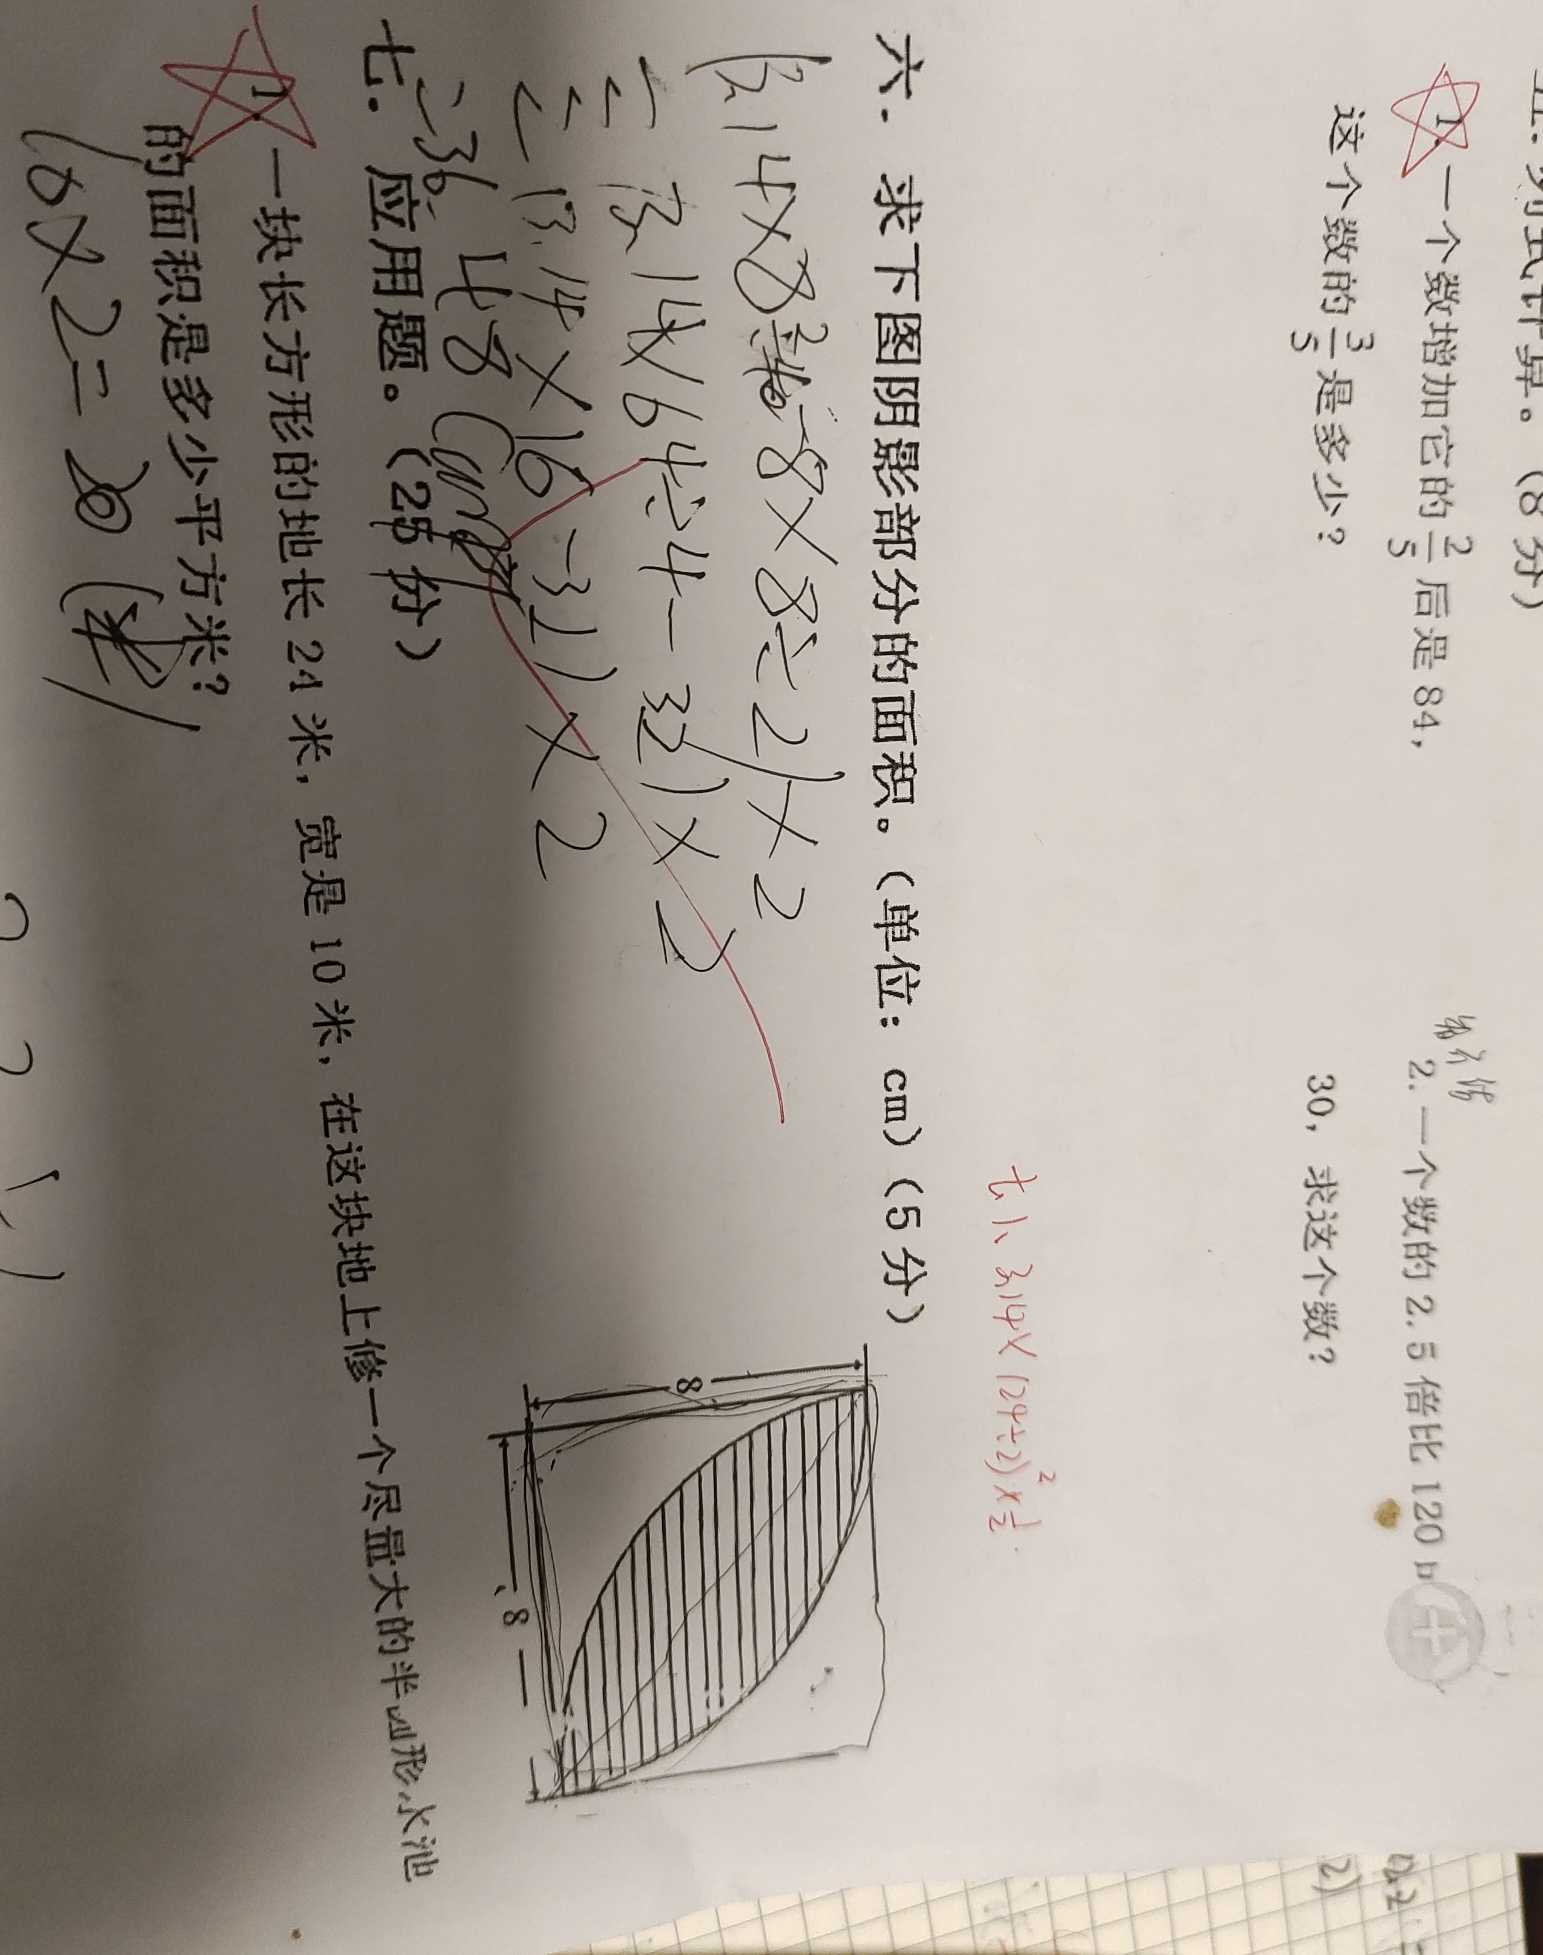 五.列式计算。(8分)
1.一个数增加它的2/5后是84,
这个数的3/5是多少?
2.一个数的2.5倍比120
30,求这个数?
七1、3.14×(24÷2)²×1/2
六. 求下图阴影部分的面积。(单位:cm)(5分)
(3.14×8²÷4-8×8÷2)×2
=(3.14×64÷4-32)×2
=(3.14×16-32)×2
=36.48(cm²)
8
8
七.应用题。(25分)
1.一块长方形的地长24米,宽是10米,在这块地上修一个尽量大的半圆形水池
的面积是多少平方米?
10×2=20(米)